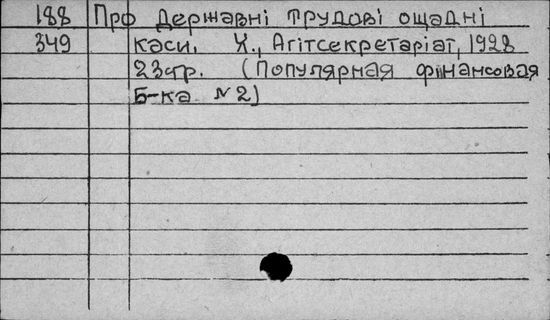 188 Прф Державні трудові ощадні
349 каси. Х., Агітсекретаріат, 1928
23стр. (Популярная фінансовая
Б-ка №2)